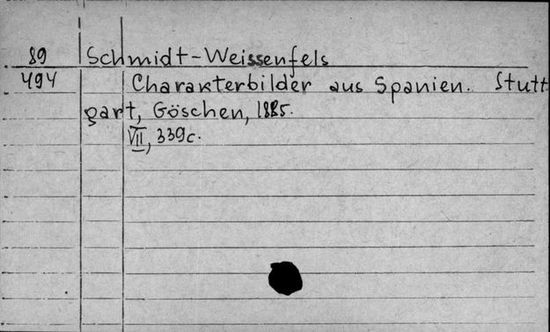 89 Schmidt-Weissenfels
494 Charakterbilder aus Spanien. Stutt
gart, Göschen, 1885.
VII, 339c.